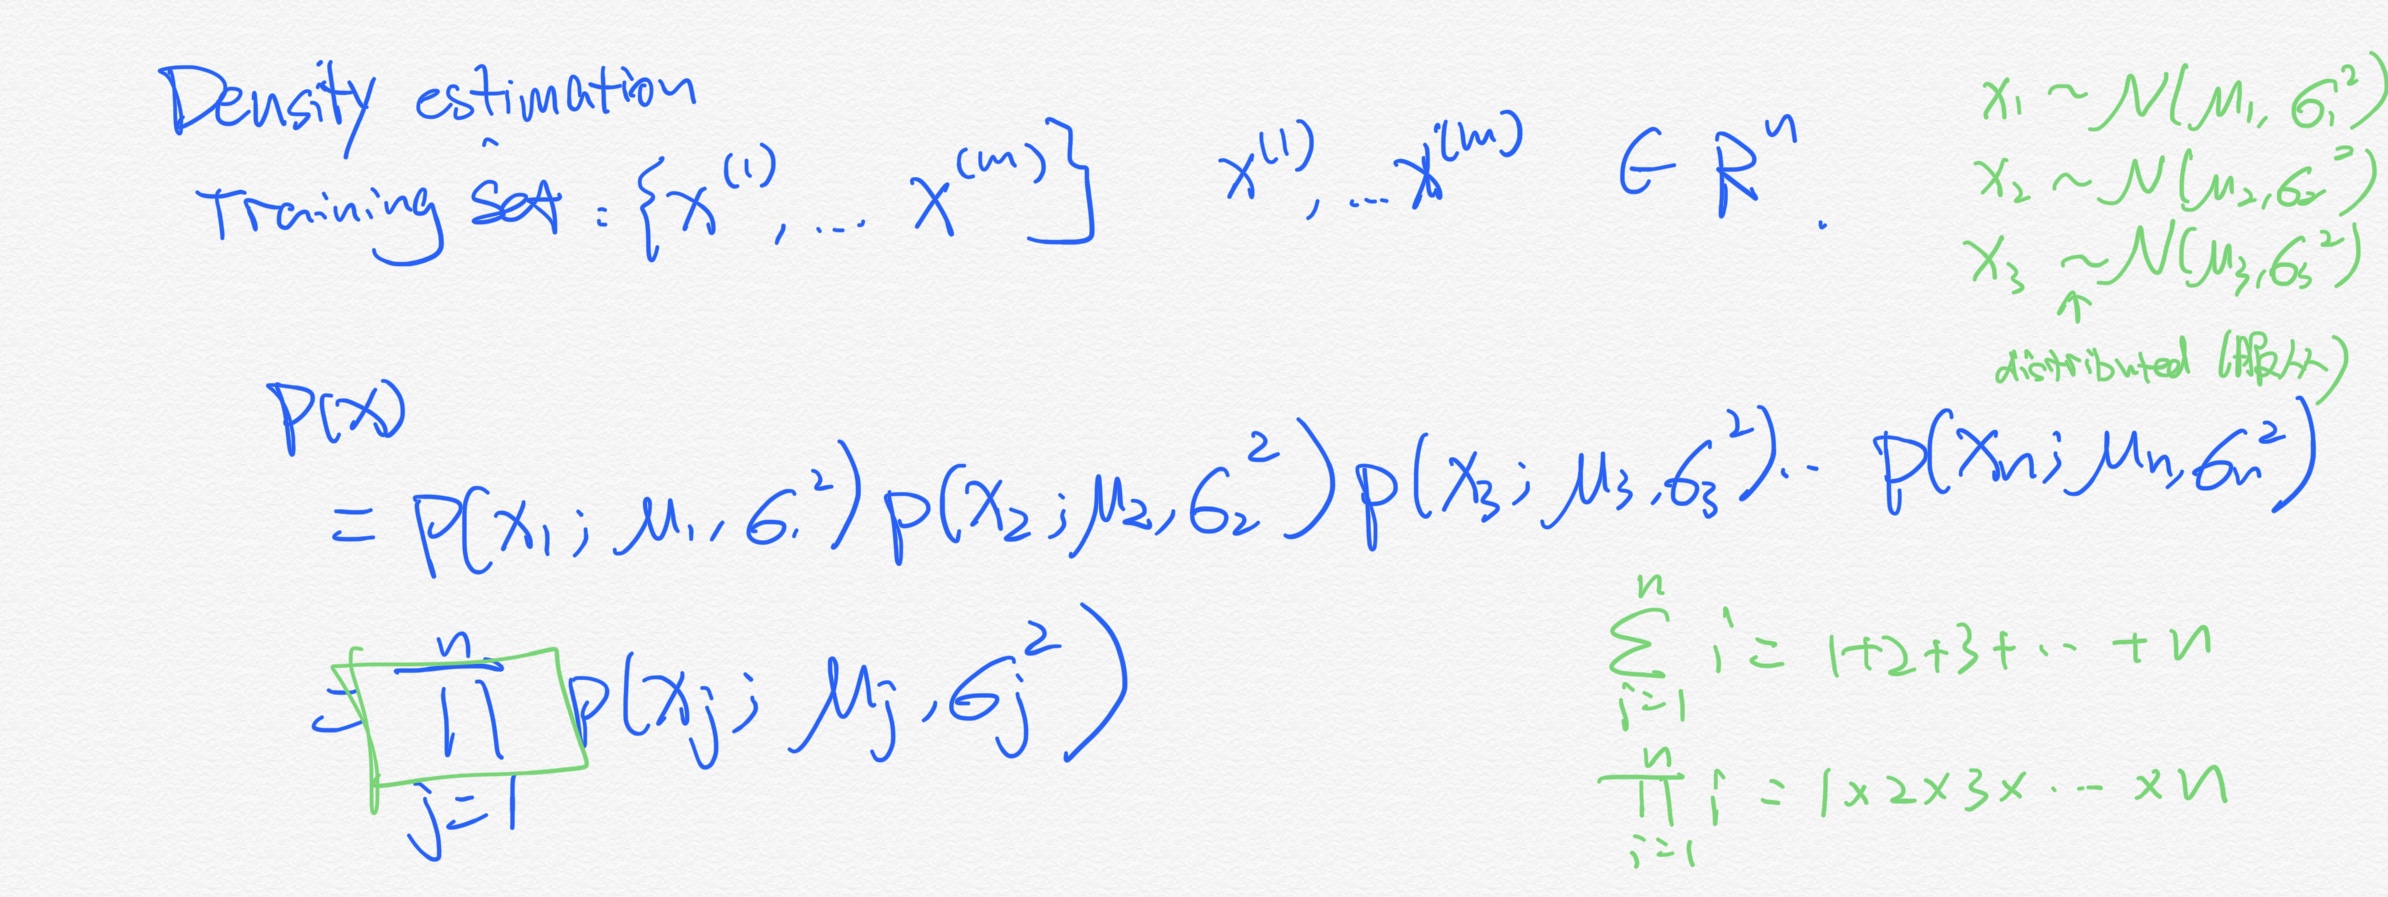 Density estimation
Training set : {x^(1), ... x^(m)}    x^(1), ... x^(m) ∈ R^n.
x₁ ~ N(μ₁, σ₁²)
x₂ ~ N(μ₂, σ₂²)
x₃ ~ N(μ₃, σ₃²)
↑
distributed
P(x)
= P(x₁; μ₁, σ₁²) P(x₂; μ₂, σ₂²) P(x₃; μ₃, σ₃²) ... P(xₙ; μₙ, σₙ²)
= ∏_{j=1}^{n} P(xⱼ; μⱼ, σⱼ²)
∑_{i=1}^{n} i = 1+2+3+ ... +n
∏_{i=1}^{n} i = 1×2×3× ... ×n